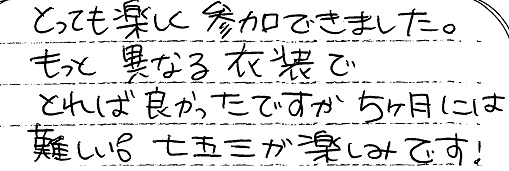 とっても楽しく参加できました。
もっと異なる衣装で
とれば良かったですが5ヶ月には
難しい。七五三が楽しみです!